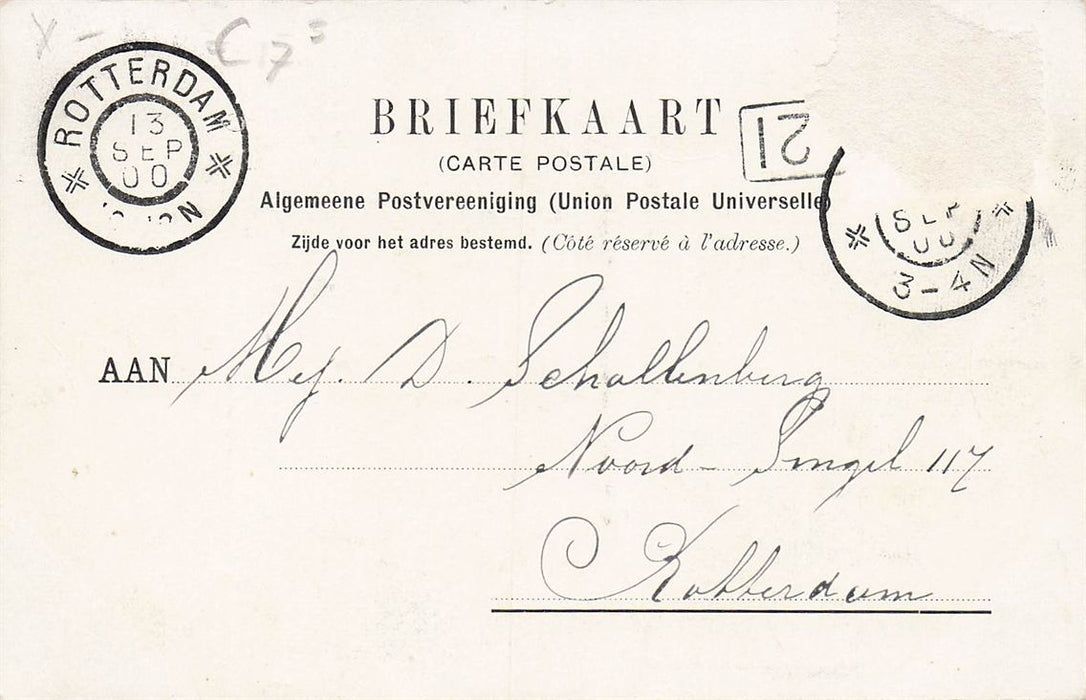 C 17 3
ROTTERDAM
13
SEP
00
BRIEFKAART
(CARTE POSTALE)
21
Algemeene Postvereeniging (Union Postale Universelle)
Zijde voor het adres bestemd. (Côté réservé à l'adresse.)
SEP
00
3-4N
AAN Mej. D. Schallenberg
Noord-Singel 117
Rotterdam